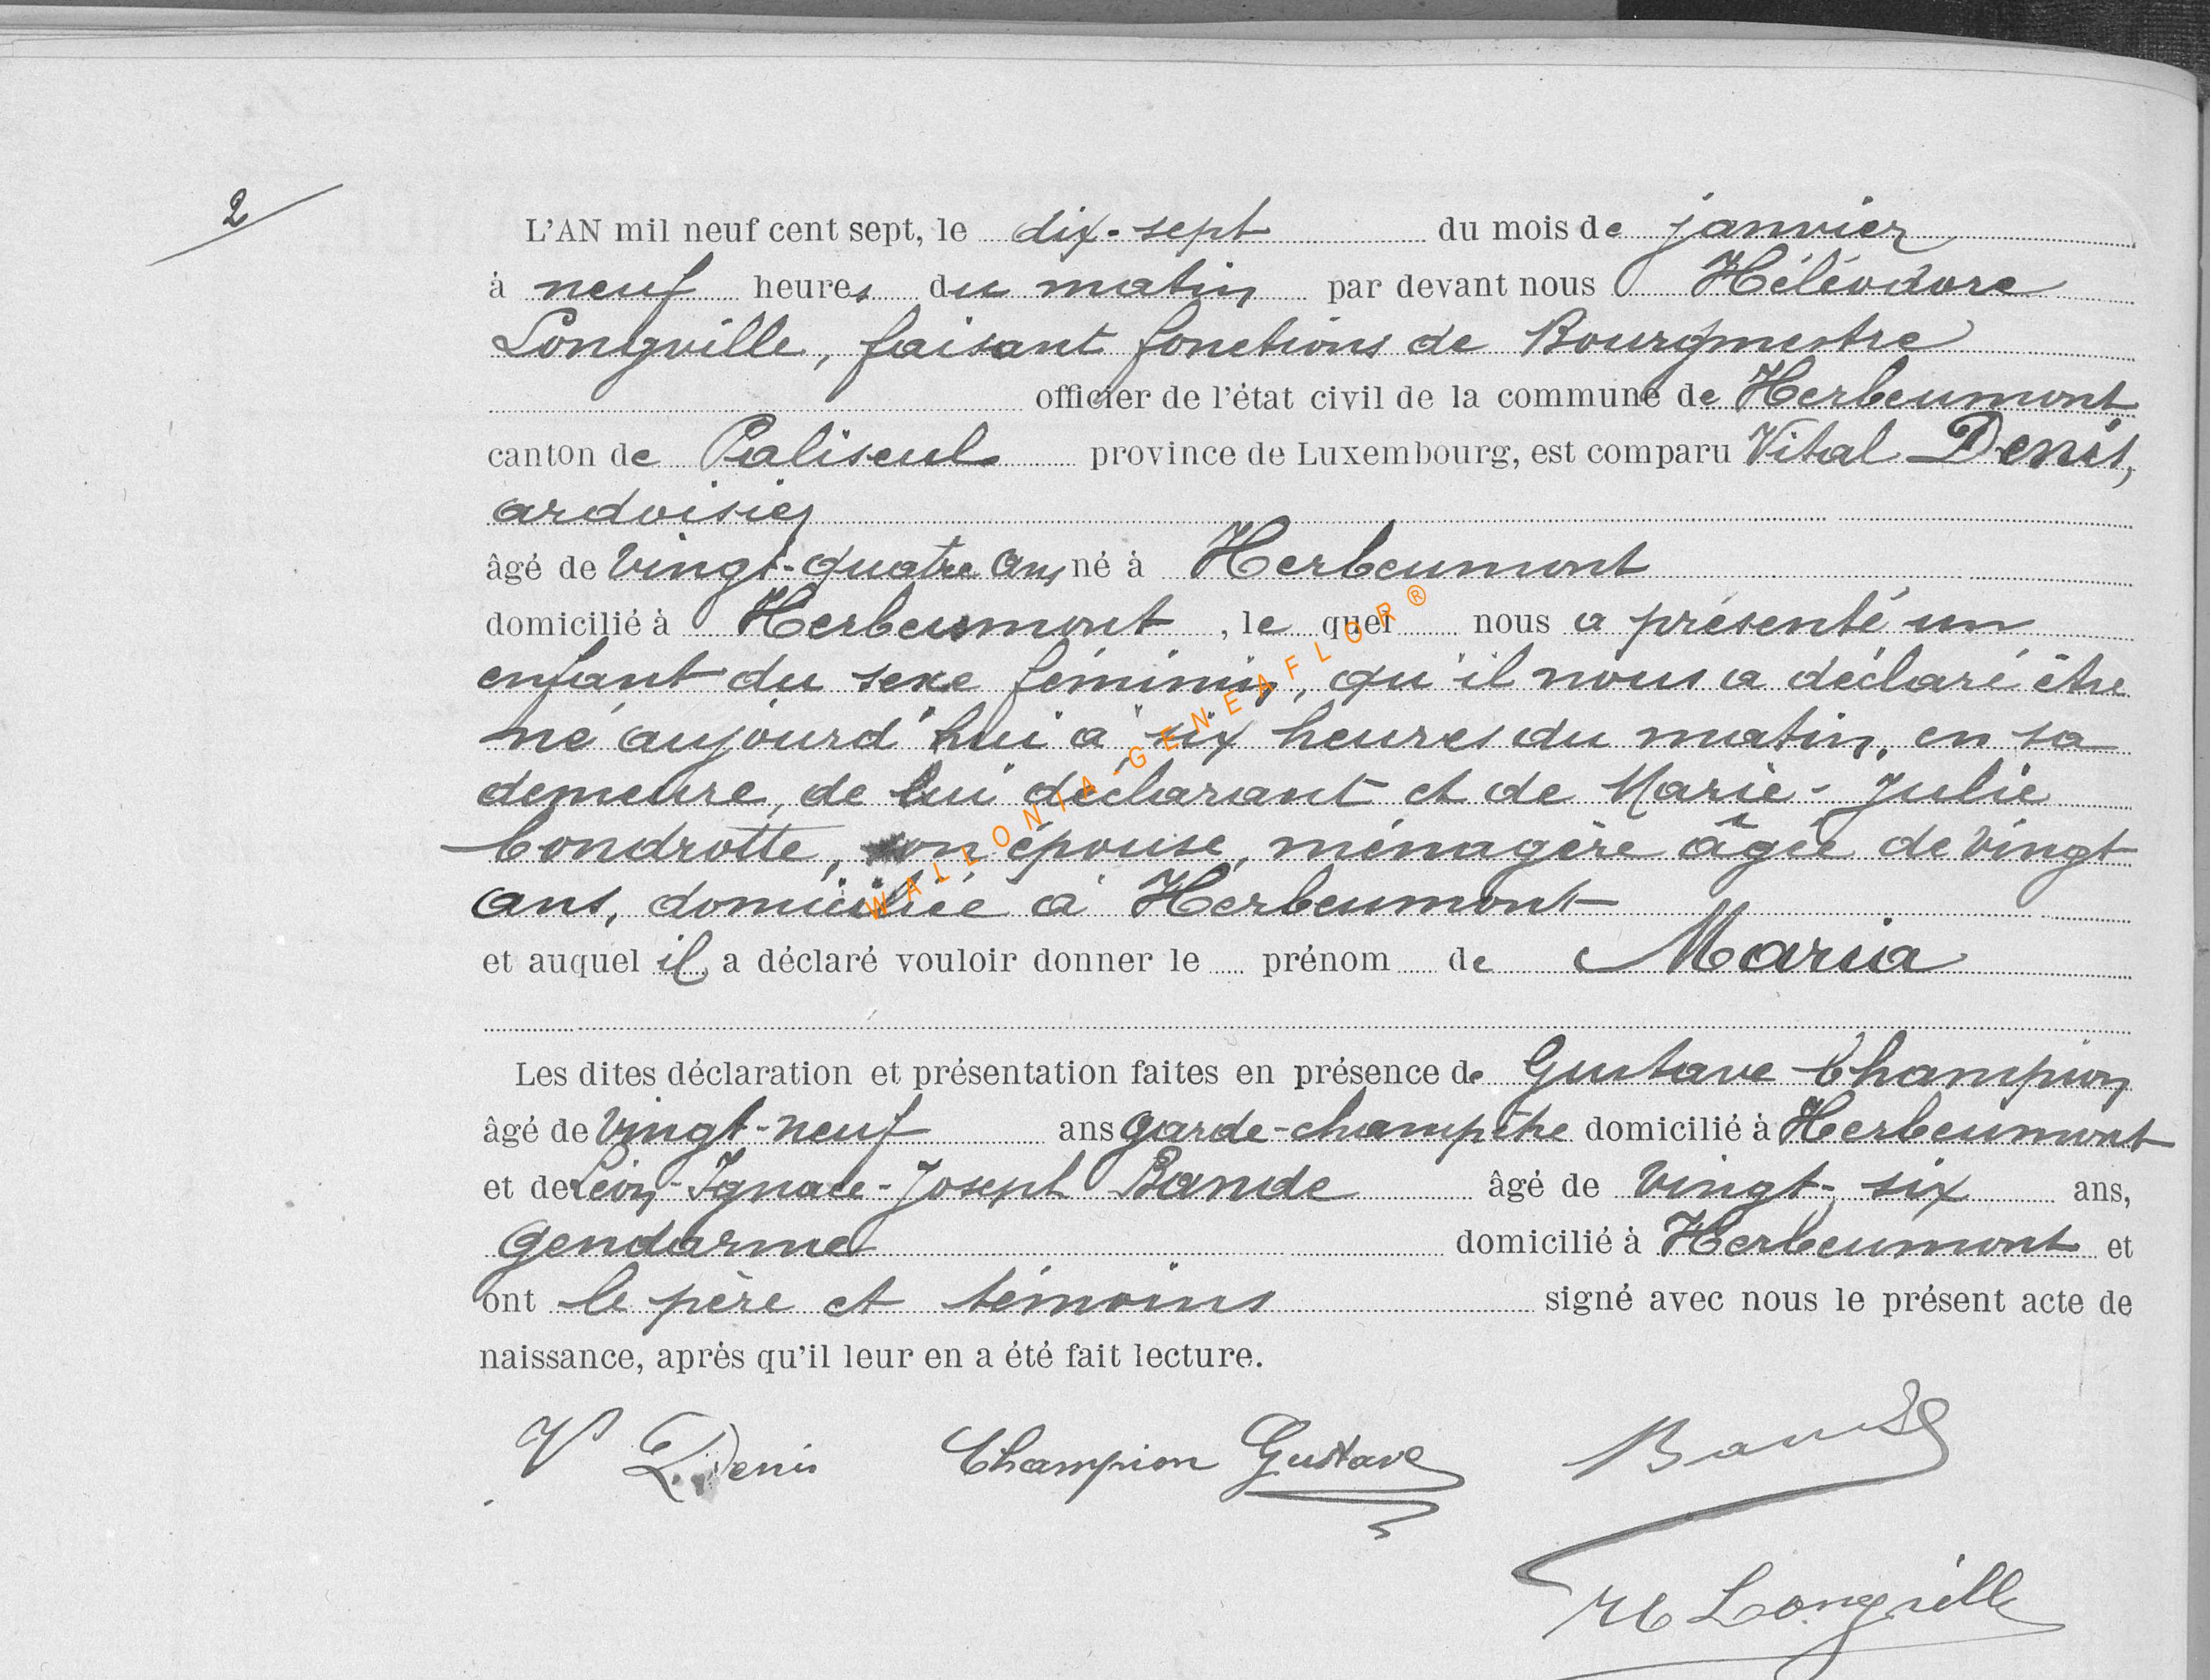 2
L'AN mil neuf cent sept, le dix-sept du mois de janvier
à neuf heures du matin par devant nous Héléodore
Longville, faisant fonctions de Bourgmestre
officier de l'état civil de la commune de Herbeumont
canton de Paliseul province de Luxembourg, est comparu Vital Denis,
ardoisier
âgé de vingt-quatre ans né à Herbeumont
domicilié à Herbeumont, le quel nous a présenté un
enfant du sexe féminin, qu'il nous a déclaré être
né aujourd'hui à six heures du matin, en sa
demeure, de lui déclarant et de Marie-Julie
Condrotte, son épouse, ménagère âgée de vingt
ans, domiciliée à Herbeumont
et auquel il a déclaré vouloir donner le prénom de Maria
Les dites déclaration et présentation faites en présence de Gustave Champion
âgé de vingt-neuf ans garde-champêtre domicilié à Herbeumont
et de Léon-Ignace-Joseph Bande âgé de vingt-six ans,
gendarme domicilié à Herbeumont et
ont le père et témoins signé avec nous le présent acte de
naissance, après qu'il leur en a été fait lecture.
V Denis Champion Gustave Bande
H Longville
WALLONIA-GENEAFLOR®